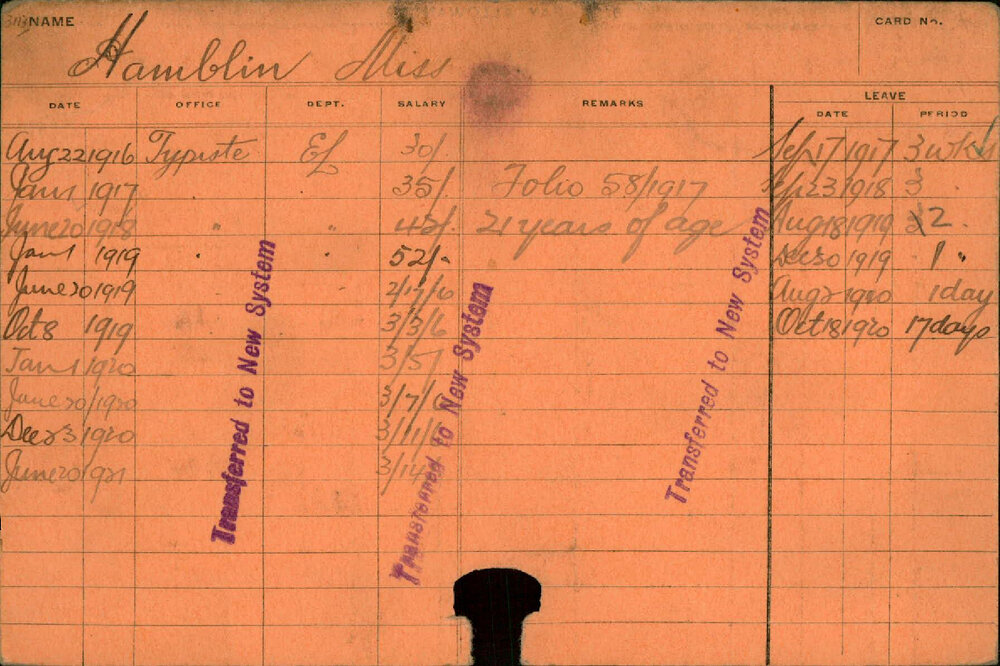 NAME
CARD No.
Hamblin Miss
DATE OFFICE DEPT. SALARY REMARKS LEAVE
DATE PERIOD
Aug 22 1916 Typiste EL 30/- Sep 17 1917 3 wks
Jan 1 1917 35/- Folio 58/1917 Sep 23 1918 3
June 20 1918 " " 42/- 21 years of age Aug 18 1919 2
Jan 1 1919 " " 52/- Dec 30 1919 1 "
June 20 1919 2/17/6 Aug 2 1920 1 day
Oct 8 1919 3/3/6 Oct 18 1920 17 days
Jan 1 1920 3/5/
June 20 1920 3/7/6
Dec 23 1920 3/11/
June 20 1921 3/14
Transferred to New System
Transferred to New System
Transferred to New System